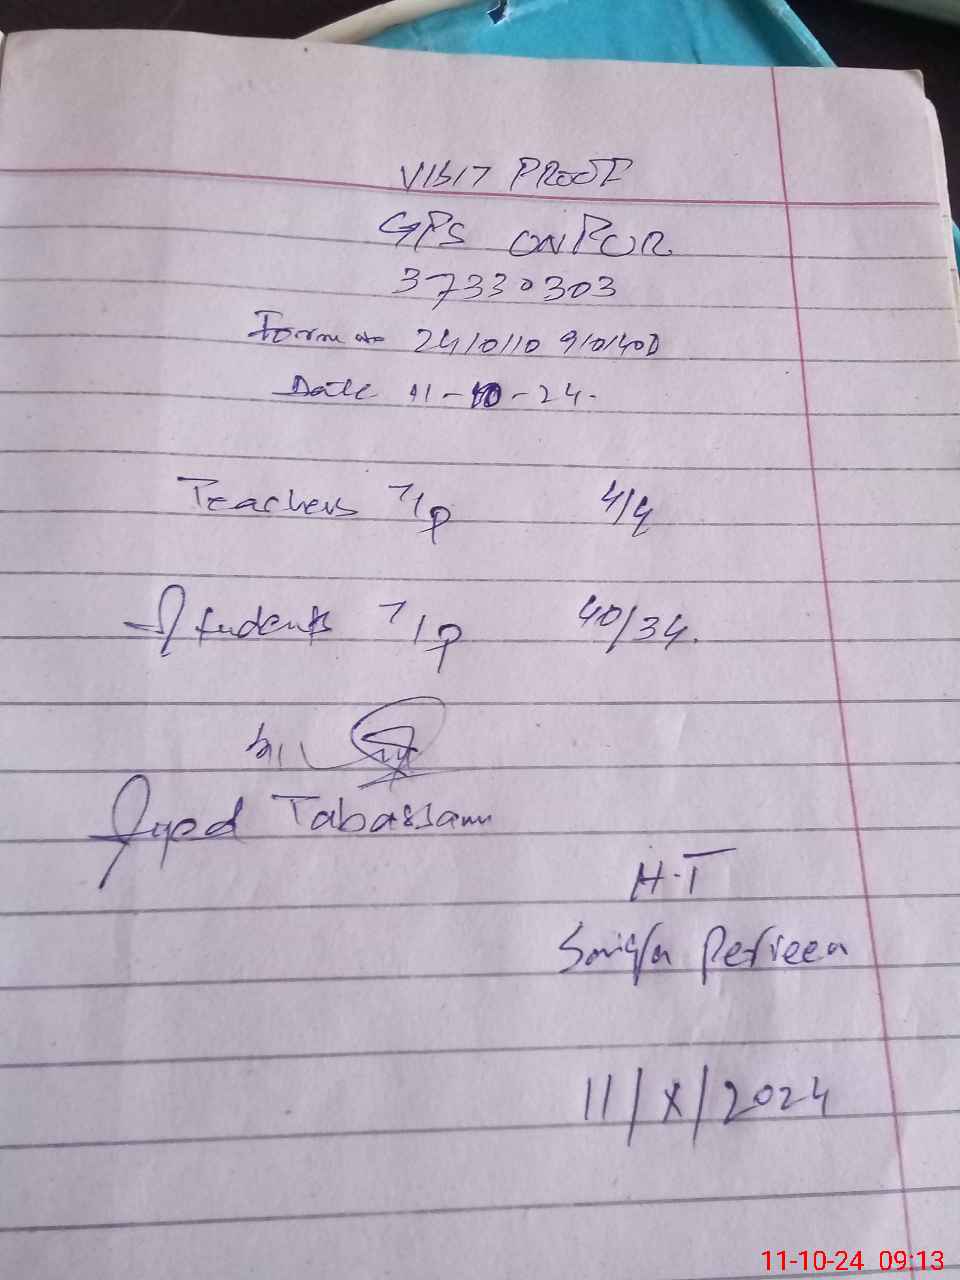 VISIT PROOF
GPS ONPUR
37330303
Form no 24101109101400
Date 11-10-24.
Teachers T/P 4/4
Students T/P 40/34.
Syed Tabassam
H.T
Saniqa Perveen
11/X/2024
11-10-24 09:13